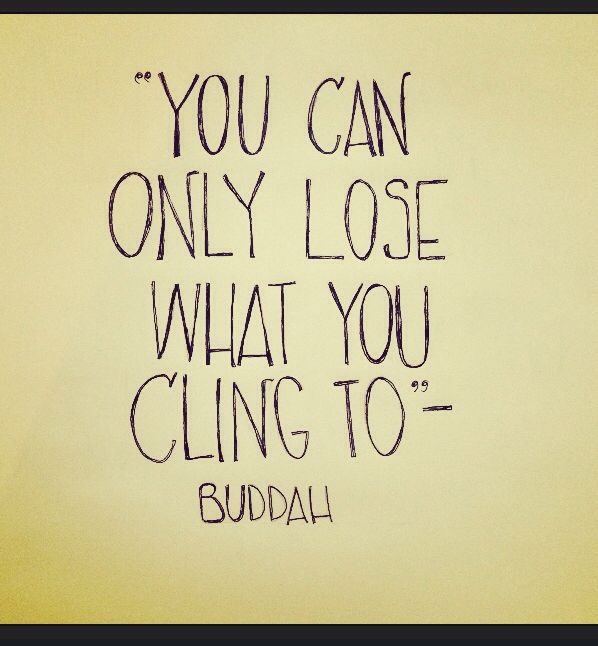 “YOU CAN
ONLY LOSE
WHAT YOU
CLING TO”—
BUDDAH